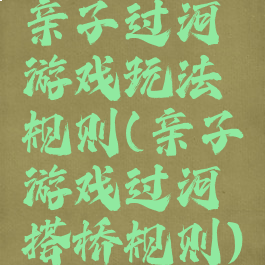 亲子过河
游戏玩法
规则(亲子
游戏过河
搭桥规则)